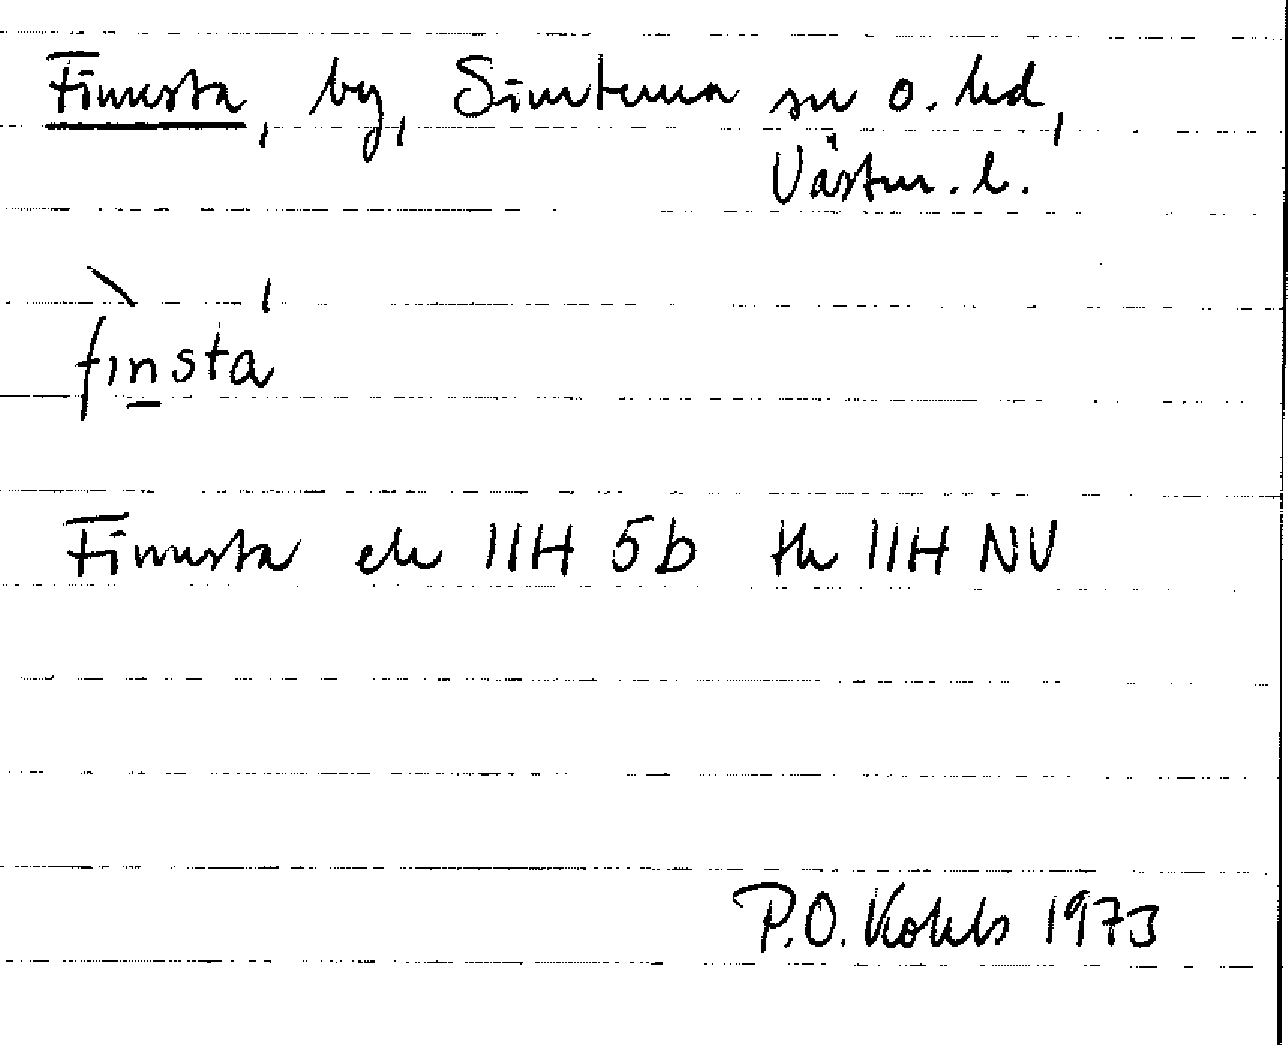 Finnsta, by, Simtuna sn o. hd,
Västm. l.
finsta
Finnsta ek 11H 5b tk 11H NV
P.O. Kohls 1973